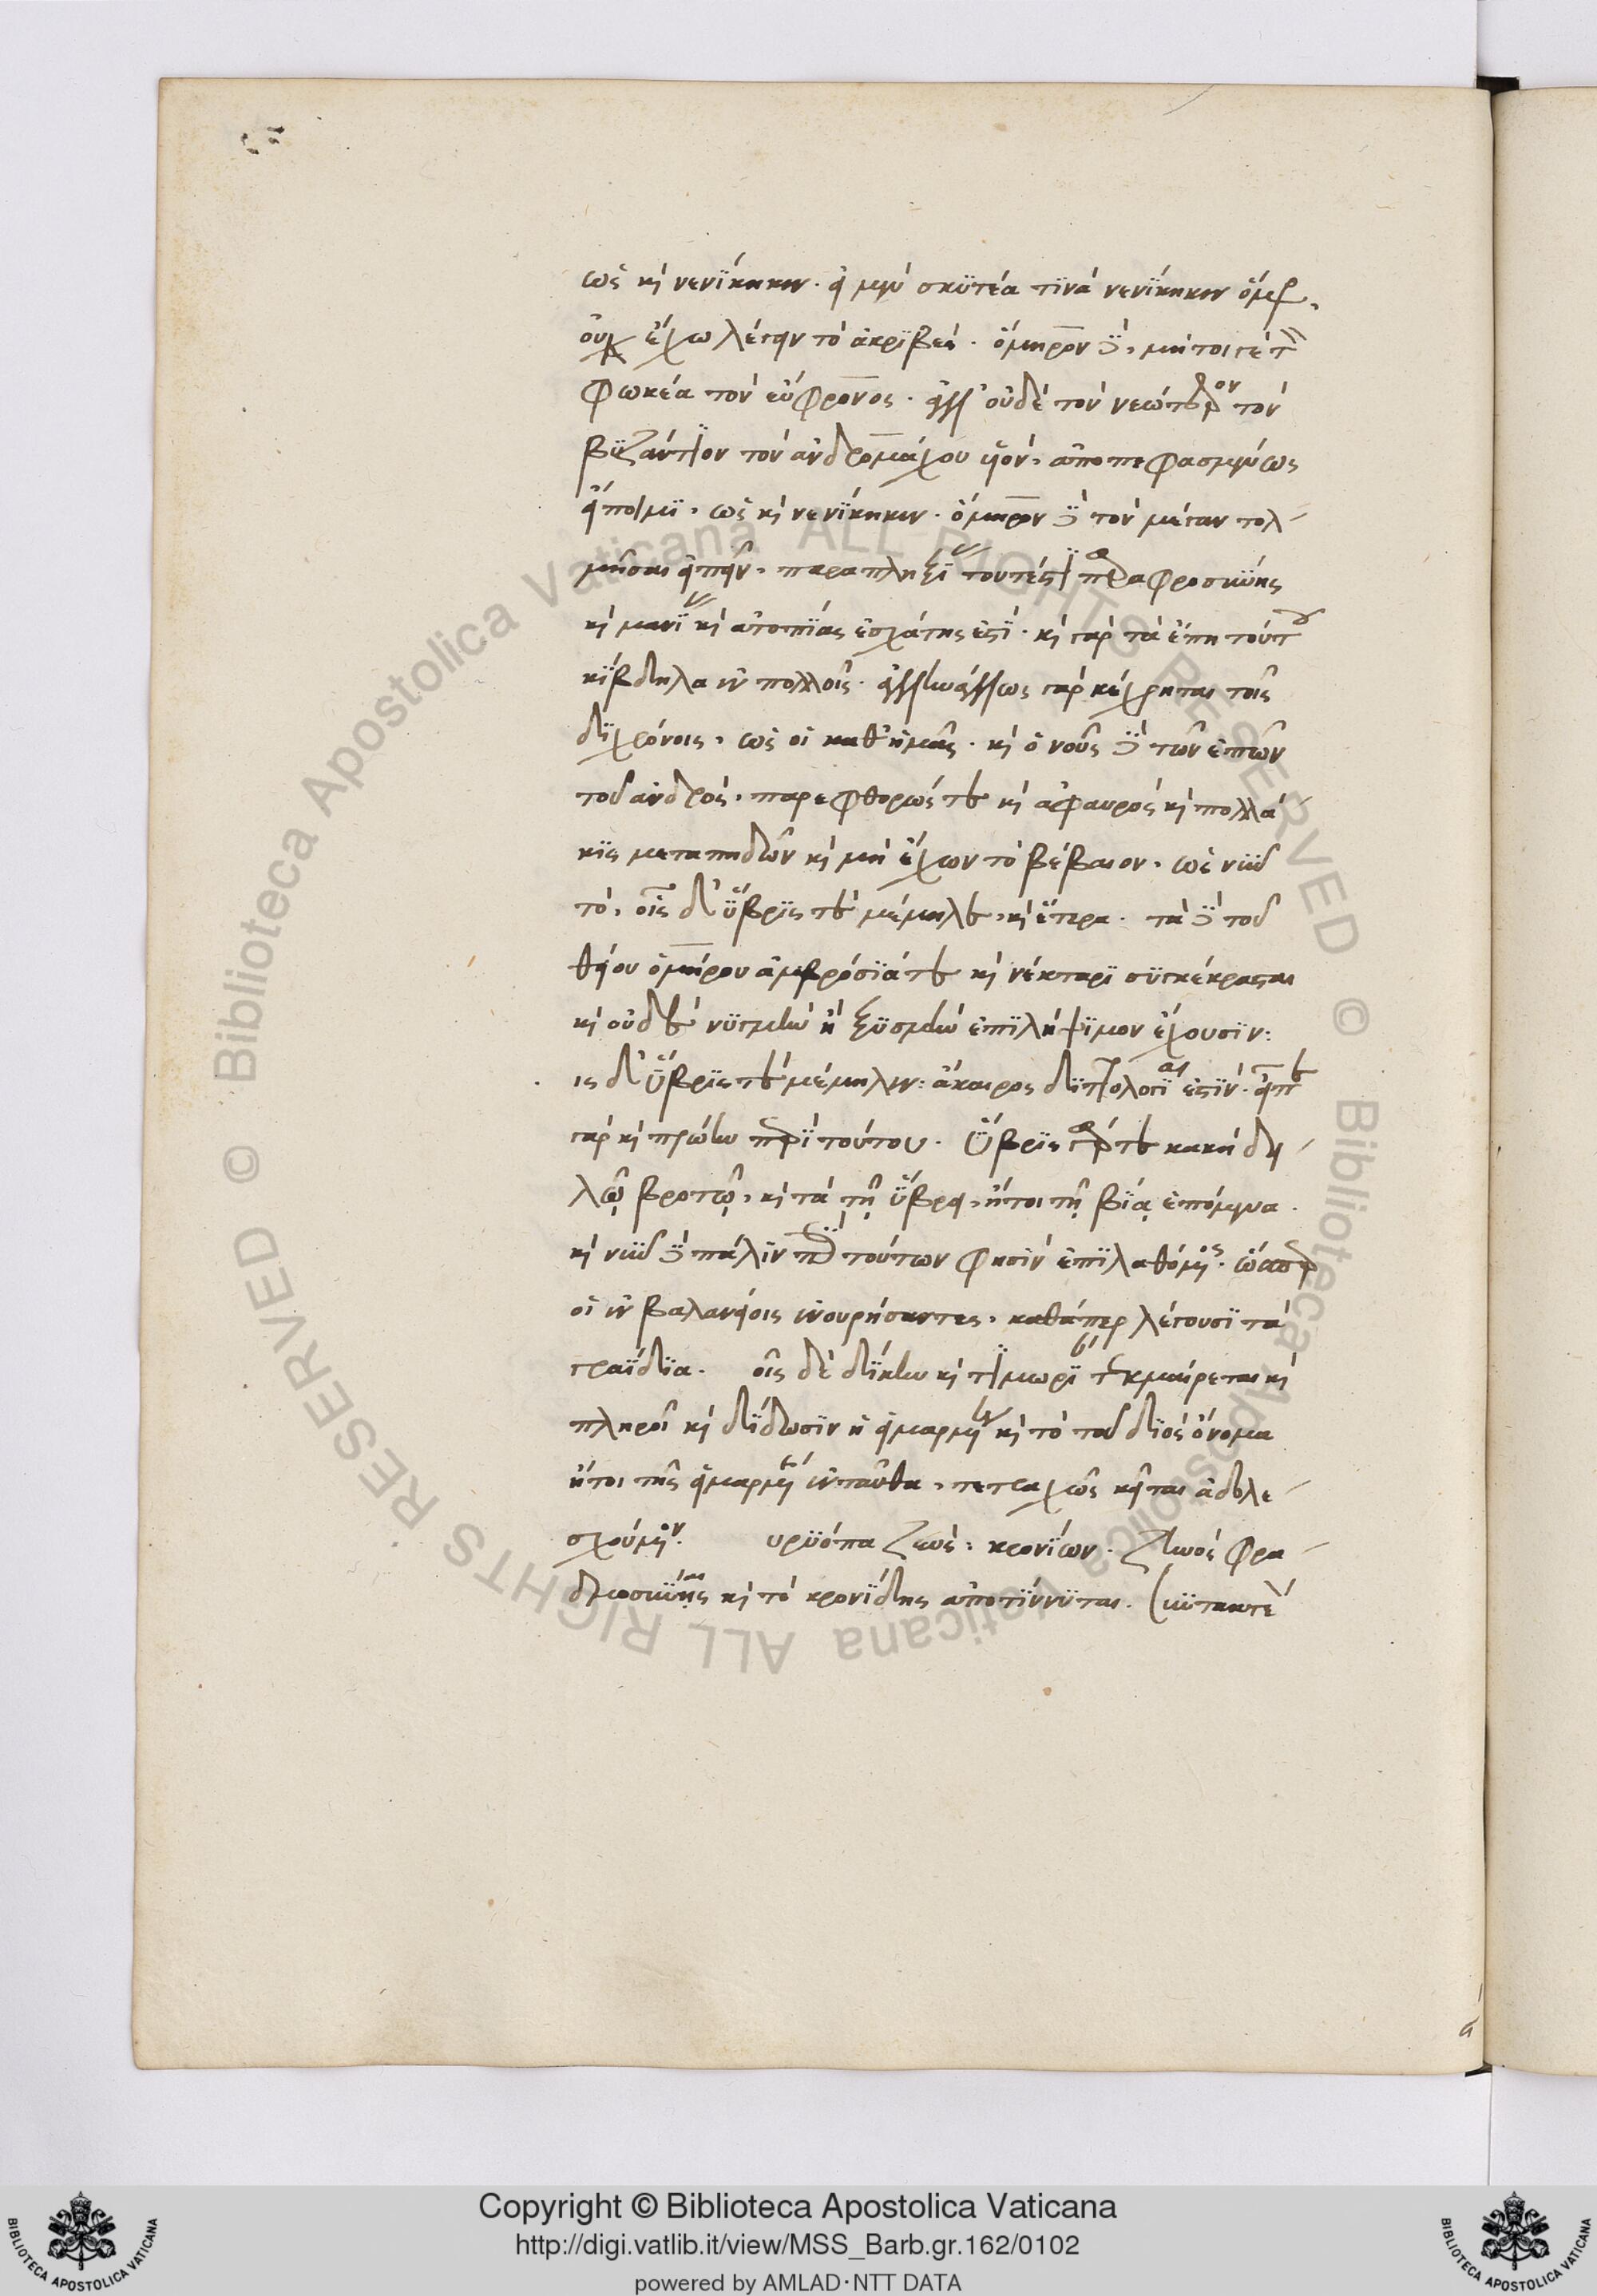 ὡς καὶ νενίκηκεν. εἰ μὲν σκυτέα τινὰ νενίκηκεν ὅμηρον,
οὐκ ἔχω λέγειν τὸ ἀκριβές. ὅμηρον δὲ, μήτοιγε τὸν
φωκέα τὸν εὔφρονος. ἀλλ' οὐδὲ τὸν νεώτερον τὸν
βυζάντιον τὸν ἀνδρομάχου υἱόν, ἀποπεφασμένως
εἴποιμι, ὡς καὶ νενίκηκεν. ὅμηρον δὲ τὸν μέγαν τολ
μῆσαι εἰπεῖν, παραπληξίας τουτέστι παραφροσύνης
καὶ μανίας καὶ ἀτοπίας ἐσχάτης ἐστί. καὶ γὰρ τὰ ἔπη τούτου
κίβδηλα ἐν πολλοῖς. ἄλλην ἄλλως γὰρ κέχρηται τοῖς
διχρόνοις, ὡς οἱ καθ' ἡμᾶς. καὶ ὁ νοῦς δὲ τῶν ἐπῶν
τοῦ ἀνδρὸς, παρεφθορώς τε καὶ ἀφαυρὸς καὶ πολλά
κις μεταπηδῶν καὶ μὴ ἔχων τὸ βέβαιον, ὡς νῦν
τὸ, οἷς δ' ὕβρις τε μέμηλε, καὶ ἕτερα. τὰ δὲ τοῦ
θείου ὁμήρου ἀμβρόσιά τε καὶ νέκταρι συγκέκραται
καὶ οὐδὲ νυγμὴν ἢ ξυσμὴν ἐπιλήψιμον ἔχουσιν:
ις δ' ὕβρις τε μέμηλεν: ἄκαιρος διττολογία ἐστίν. εἶπε
γὰρ καὶ πρώην περὶ τούτου. ὕβρις γάρ τε κακὴ δει
λῷ βροτῷ, καὶ τὰ τῇ ὕβρει, ἤτοι τῇ βίᾳ ἑπόμενα.
καὶ νῦν δὲ πάλιν περὶ τούτων φησὶν ἐπιλαθόμενος. ὥσπερ
οἱ ἐν βαλανείοις ἐνουρήσαντες, καθάπερ λέγουσι τὰ
γραΐδια. οἷς δὲ δίκην καὶ τιμωρίαν τεκμαίρεται καὶ
πληροῖ καὶ δίδωσιν ἡ εἱμαρμένη καὶ τὸ τοῦ διὸς ὄνομα
ἤτοι τῆς εἱμαρμένης ἐνταῦθα, τετραχῶς κεῖται ἀδολε
σχούμενον. υρυόπα ζεὺς: κρονίων. ζηνὸς φρα
δμοσύνης καὶ τὸ κρονίδης ἀποτίννυται.

Copyright © Biblioteca Apostolica Vaticana
http://digi.vatlib.it/view/MSS_Barb.gr.162/0102
powered by AMLAD·NTT DATA